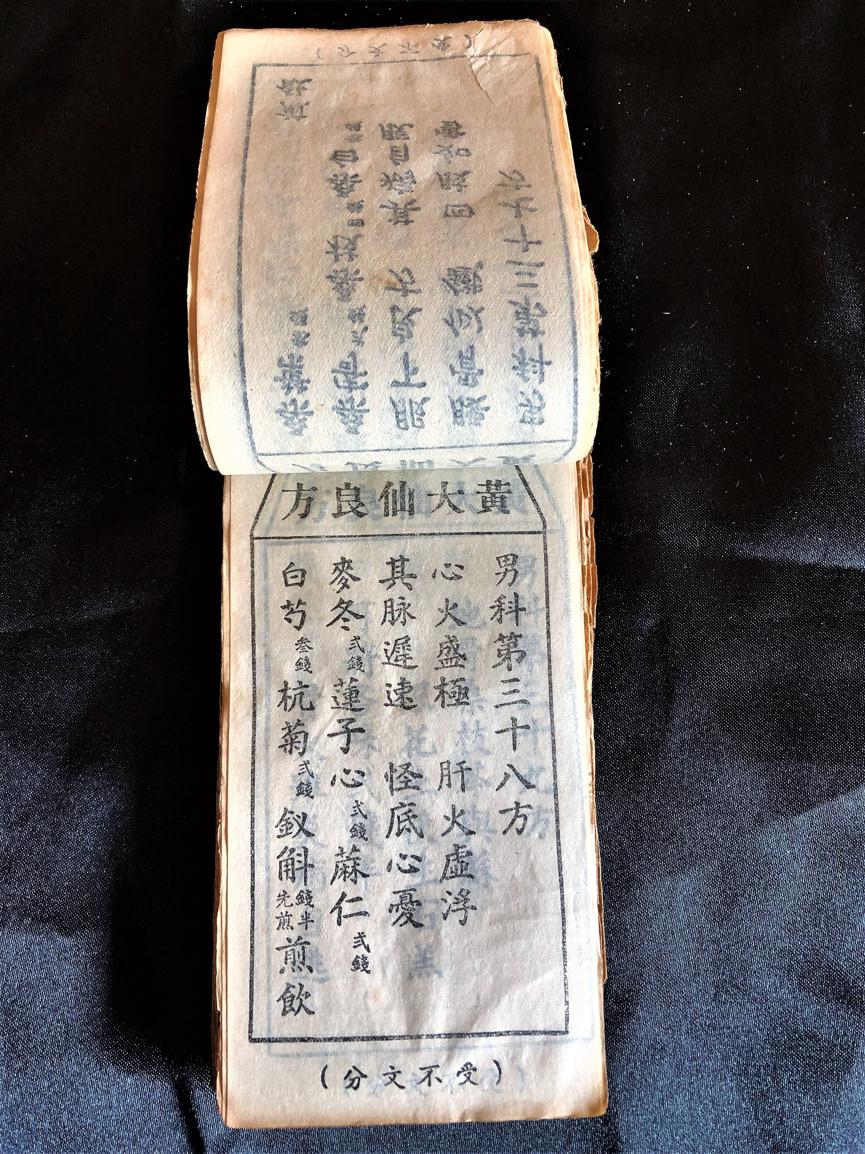 男科第三十七方
服下良方　其病自脫
黃大仙良方
男科第三十八方
心火盛極　肝火虛浮
其脉遲速　怪底心憂
麥冬弍錢 蓮子心弍錢 蔴仁弍錢
白芍叁錢 杭菊弍錢 釵斛錢半先煎 煎飲
(受不文分)